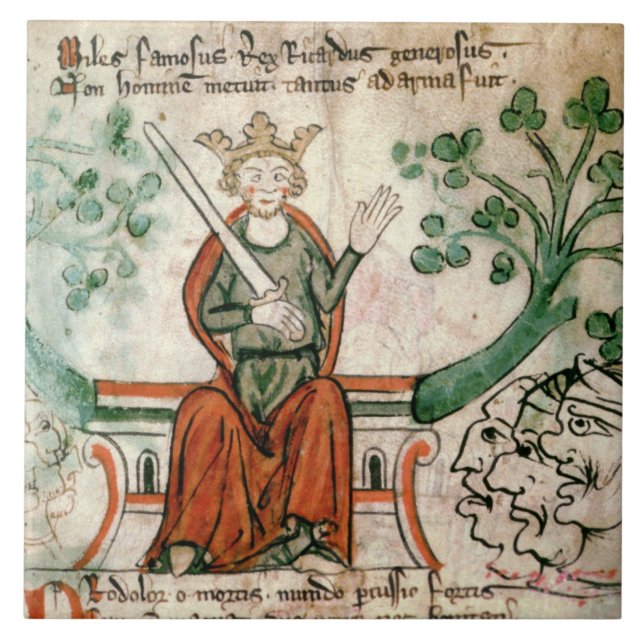 Miles famosus Rex Ricardus generosus.
Non hominē metuit. tantus ad arma fuit.
Pro dolor o mortis. mundo p̄cussio fortis